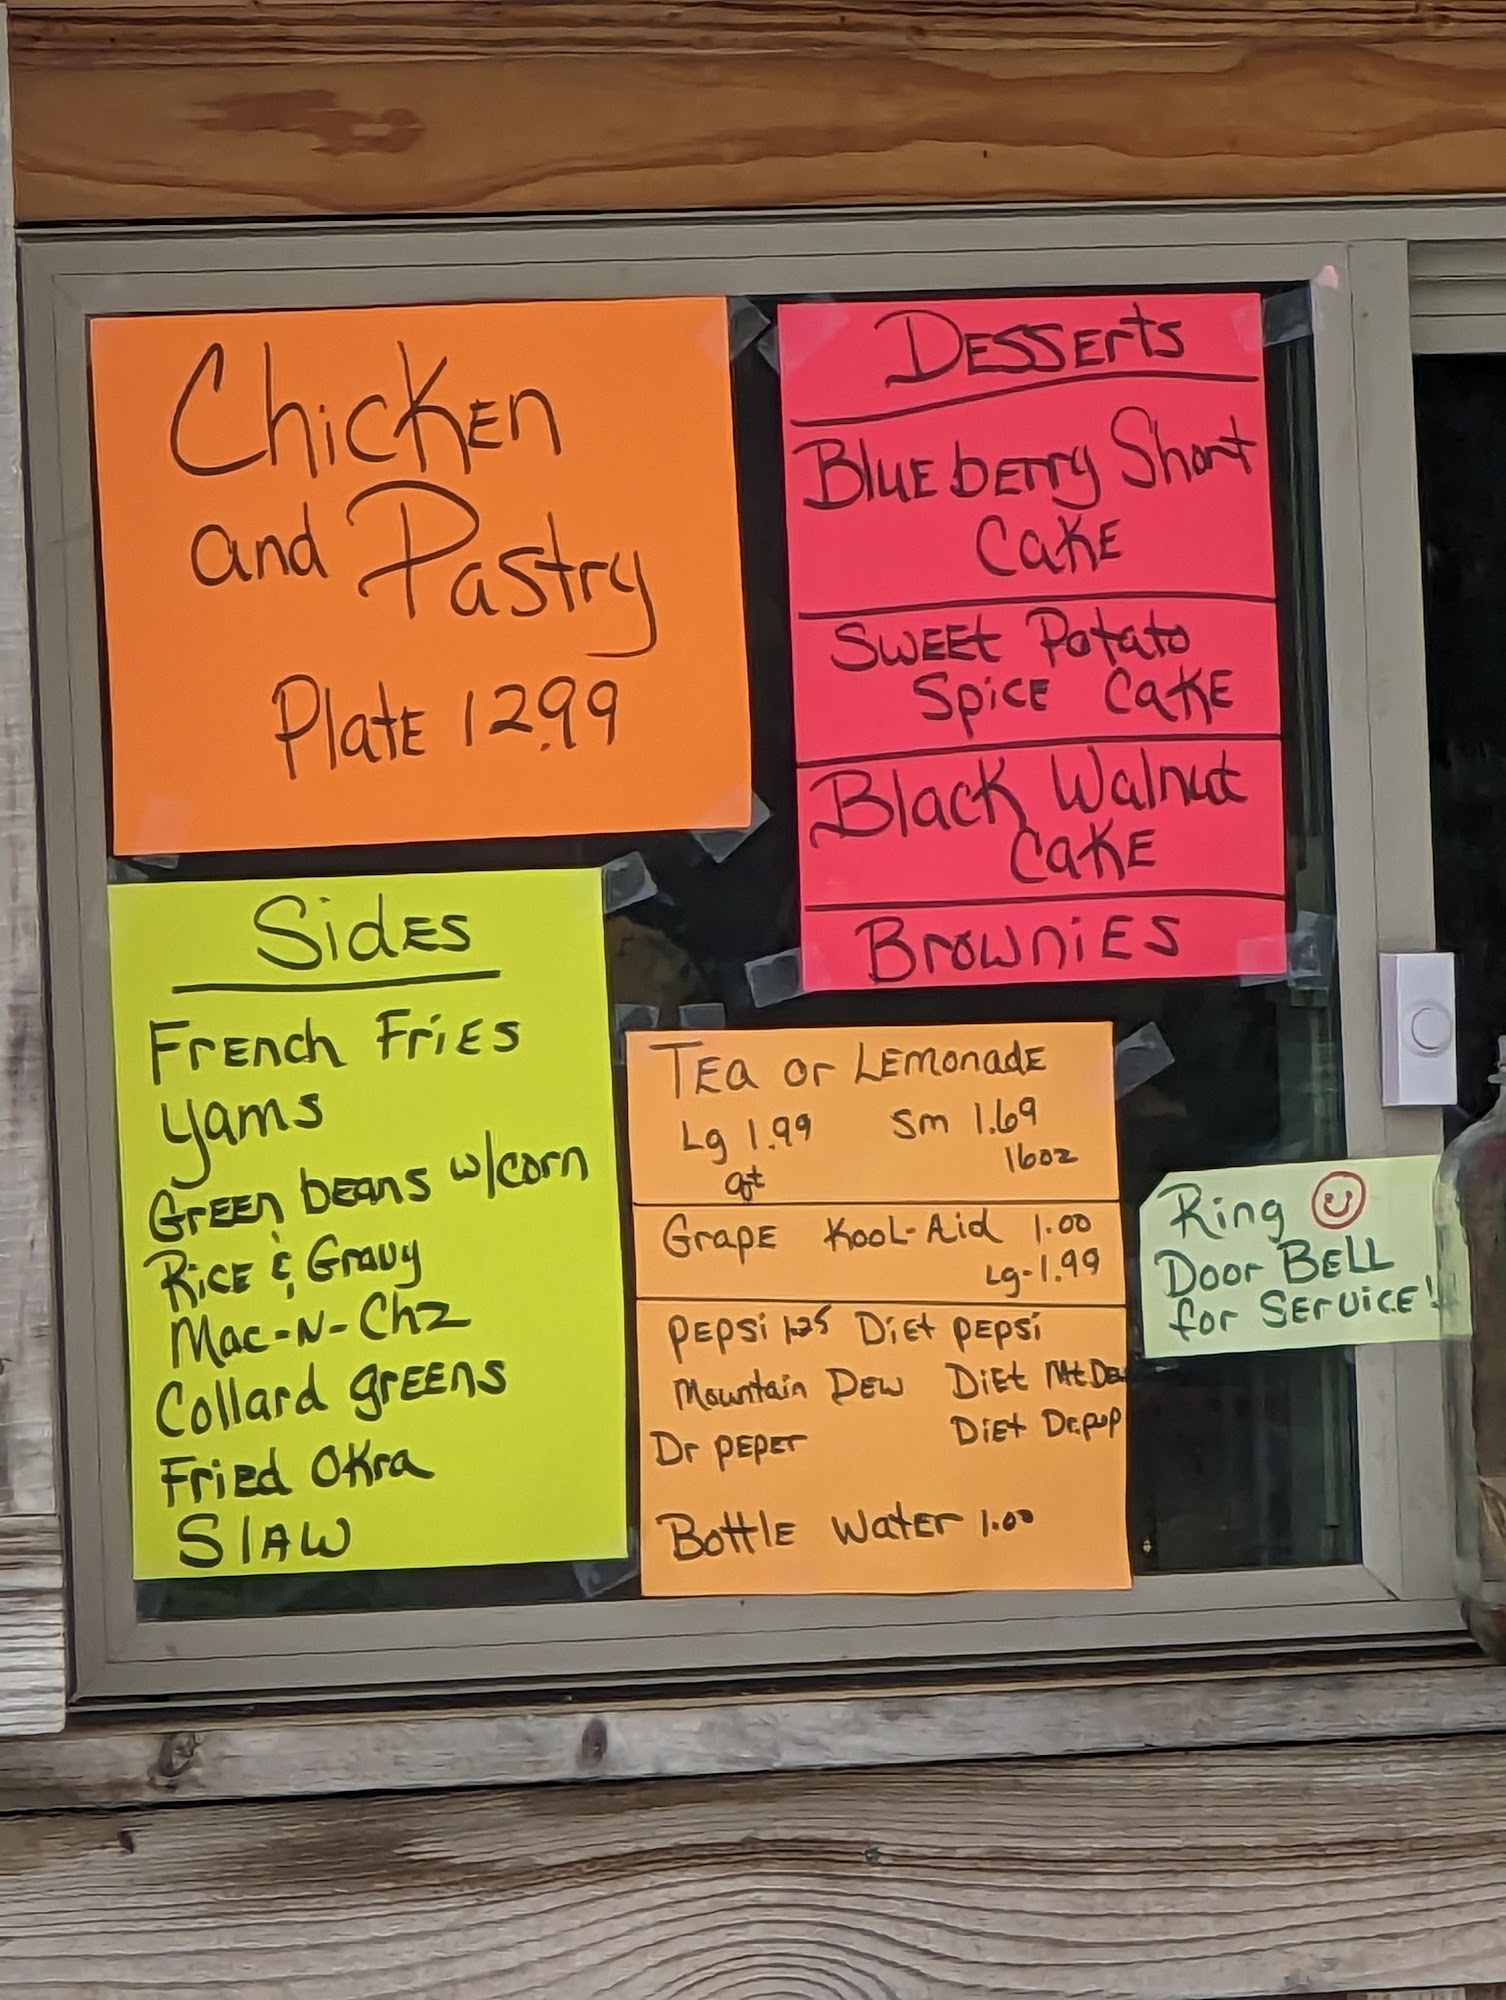 Chicken
and Pastry
Plate 12.99
Desserts
Blueberry Short
Cake
Sweet Potato
Spice Cake
Black Walnut
Cake
Brownies
Sides
French Fries
Yams
Green beans w/corn
Rice & Gravy
Mac-N-Chz
Collard greens
Fried Okra
Slaw
Tea or Lemonade
Lg 1.99 Sm 1.69
qt 16oz
Grape Kool-Aid 1.00
Lg-1.99
Pepsi 1.25 Diet pepsi
Mountain Dew Diet Mt.Dew
Dr peper Diet Dr.pep
Bottle water 1.00
Ring
Door Bell
for Service!